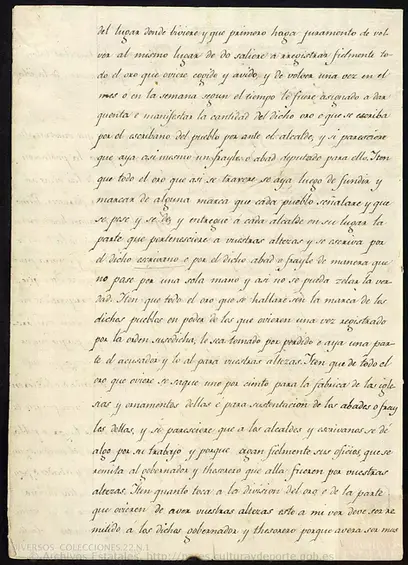 del lugar donde biviere y que primero haga juramento de vol-
ver al mismo lugar de do saliere á rregistrar fielmente to-
do el oro que oviere cogido y avido, y de volver una vez en el
mes o en la semana segun el tiempo le fuere asignado a dar
quenta e manifestar la cantidad del dicho oro e que se escriba
por el escribano del pueblo por ante el alcalde, y si paresciere
que aya asi mesmo un frayle o abad diputado para ello. Iten
que todo el oro que asi se traxere se aya luego de fundir y
marcar de alguna marca que cada pueblo señalare y que
se pese y se dé y entregue á cada alcalde en su lugar la
parte que perteneciere a vuestras altezas y se escriva por
el dicho escrivano e por el dicho abad o frayle de manera que
no pase por una sola mano y asi no se pueda zelar la ver
dad. Iten que todo el oro que se hallare sin la marca de los
dichos pueblos en poder de los que ovieren una vez registrado
por la orden susodicha, le sea tomado por perdido e aya una par-
te el acusador y lo al para vuestras altezas. Iten que de todo el
oro que oviere se saque uno por ciento para la fábrica de las igle
sias y ornamentos dellas e para sustentacion de los abades o fray
les dellas, y si paresciere que a los alcaldes y escrivanos se dé
algo por su trabajo y porque agan fielmente sus oficios, que se
remita al gobernador y thesorero que alla fueren por vuestras
altezas. Iten quanto toca a la division del oro e de la parte
que ovieren de aver vuestras altezas esto a mi ver debe ser re
mitido a los dichos gobernador y thesorero porque avera ser mas
DIVERSOS-COLECCIONES,22,N.1